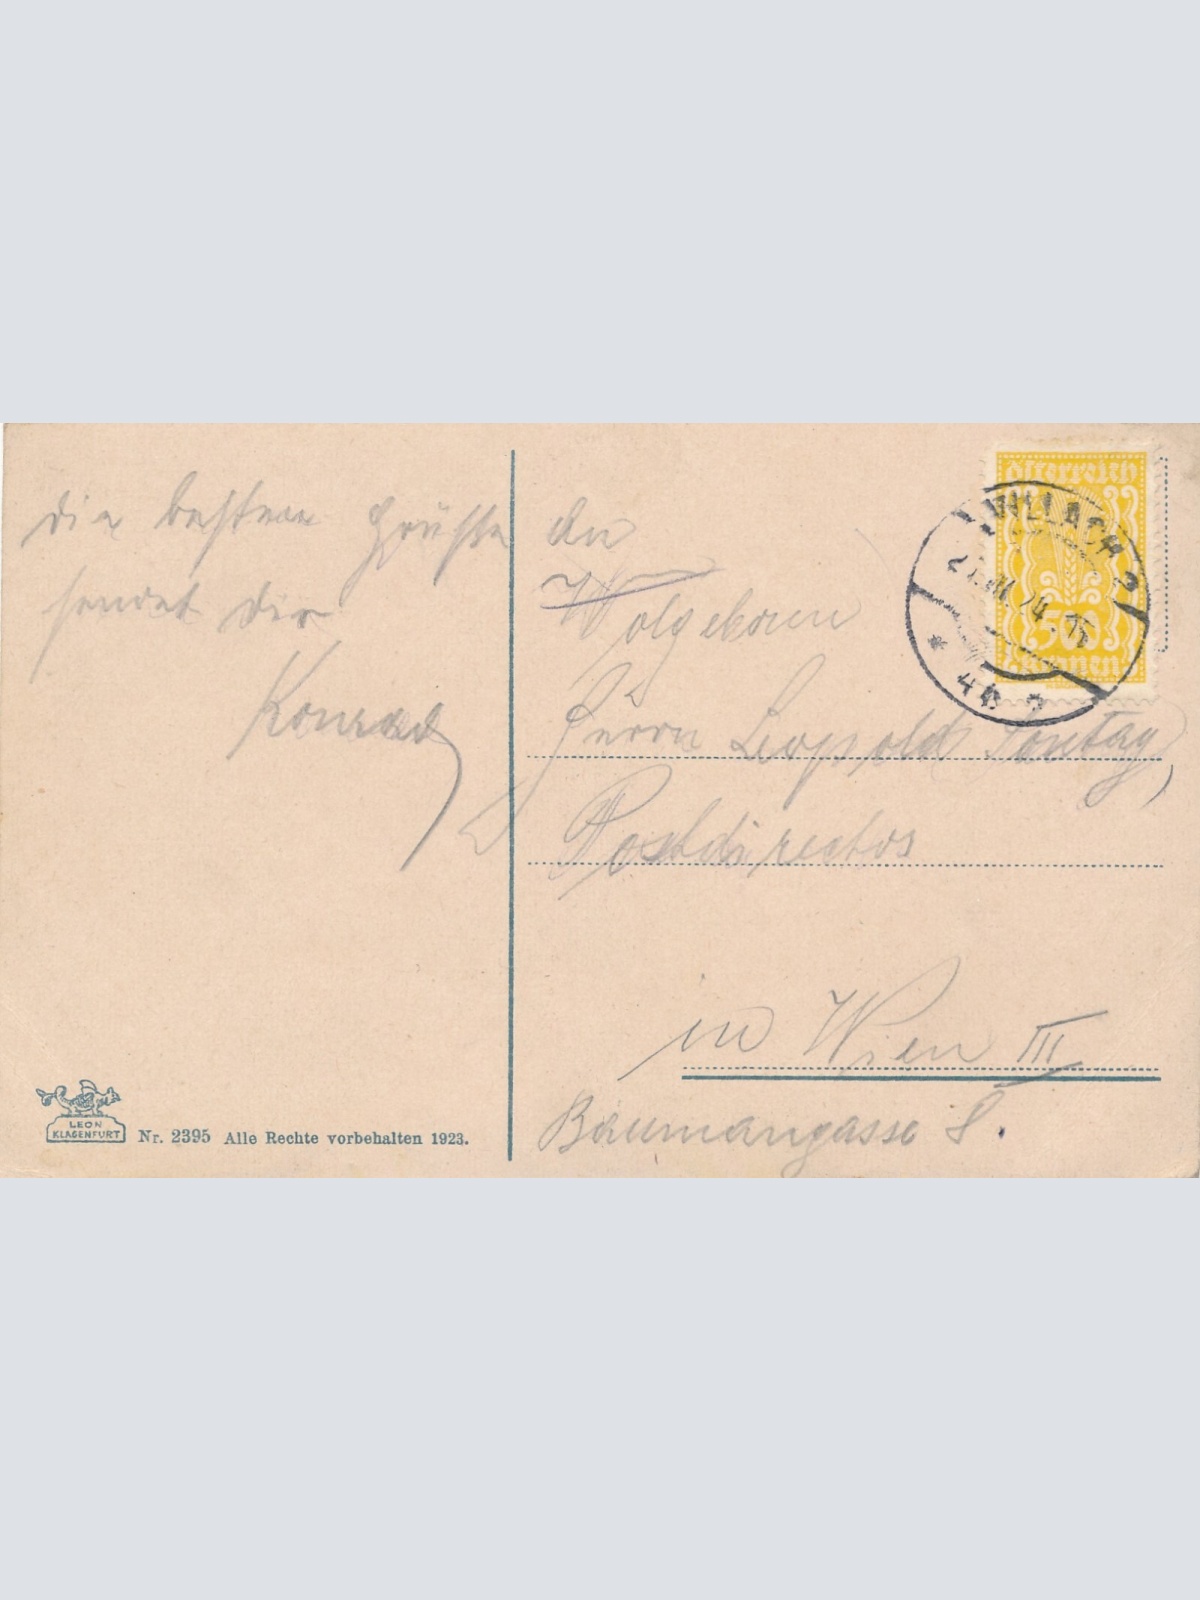 Die besten Grüße
sendet Dir
Konrad
An
Wolgeboren
Herrn Leopold Sontag,
Postdirector
in Wien III
Baumangasse 8.
österreich
500
Kronen
VILLACH 2
24
* 4b
LEON
KLAGENFURT
Nr. 2395 Alle Rechte vorbehalten 1923.